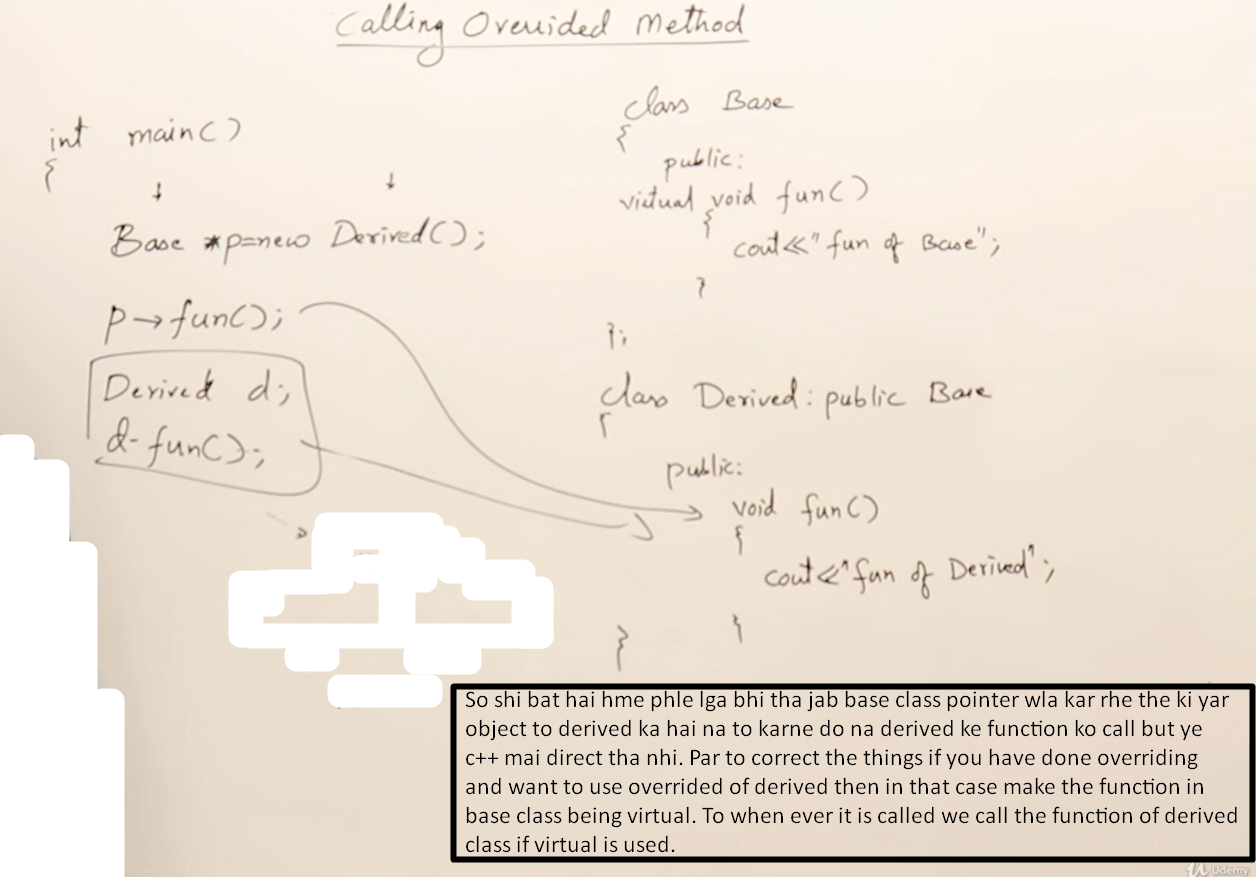 Calling Overrided Method
int main()
{
↓ ↓
Base *p=new Derived();
p→fun();
Derived d;
d.fun();
class Base
{
public:
virtual void fun()
{
cout<<"fun of Base";
}
};
class Derived: public Base
{
public:
void fun()
{
cout<<"fun of Derived";
}
}
So shi bat hai hme phle lga bhi tha jab base class pointer wla kar rhe the ki yar
object to derived ka hai na to karne do na derived ke function ko call but ye
c++ mai direct tha nhi. Par to correct the things if you have done overriding
and want to use overrided of derived then in that case make the function in
base class being virtual. To when ever it is called we call the function of derived
class if virtual is used.
Udemy